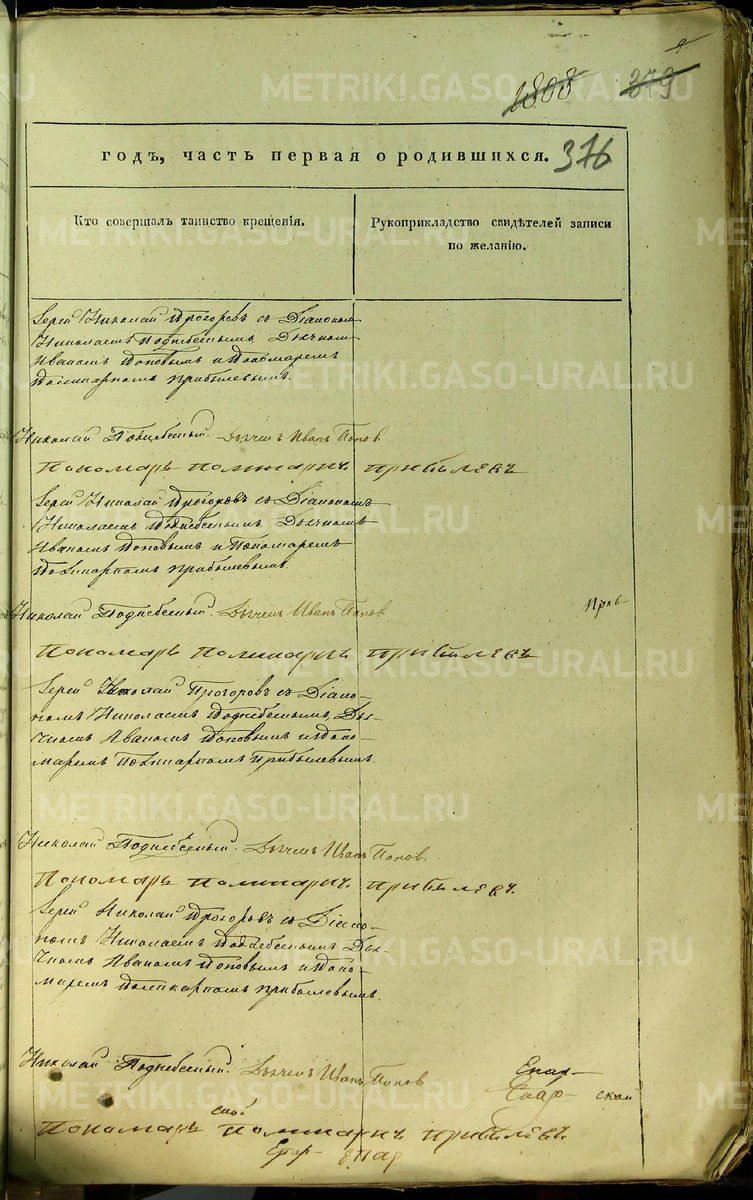 1808 379
годъ, часть первая о родившихся. 376
Кто совершалъ таинство крещенія.
Рукоприкладство свидѣтелей записи
по желанію.
Іерей Николай Прогоровъ съ Діакономъ
Николаемъ Поднебеснымъ Дьячкомъ
Иваномъ Поповымъ и Пономаремъ
Поликарпомъ Прибылевымъ.
Николай Поднебесный. Дьячекъ Иванъ Попов
Пономарь Поликарпъ Прибылевъ
Іерей Николай Прогоровъ съ Діакономъ
Николаемъ Поднебеснымъ Дьячкомъ
Иваномъ Поповымъ и Пономаремъ
Поликарпомъ Прибылевымъ.
Николай Поднебесный. Дьячекъ Иванъ Попов
Приб
Пономарь Поликарпъ Прибылевъ
Іерей Николай Прогоровъ съ Діако-
номъ Николаемъ Поднебеснымъ, Дья-
чкомъ Иваномъ Поповымъ и Поно-
маремъ Поликарпомъ Прибылевымъ.
Николай Поднебесный. Дьячекъ Иванъ Попов
Пономарь Поликарпъ Прибылевъ.
Іерей Николай Прогоровъ съ Діако-
номъ Николаемъ Поднебеснымъ Дья-
чкомъ Иваномъ Поповымъ и Поно-
маремъ Поликарпомъ Прибылевымъ.
Николай Поднебесный. Дьячекъ Иванъ Попов
Епар-
Епар- скай
Пономарь Поликарпъ Прибылевъ.
METRIKI.GASO-URAL.RU